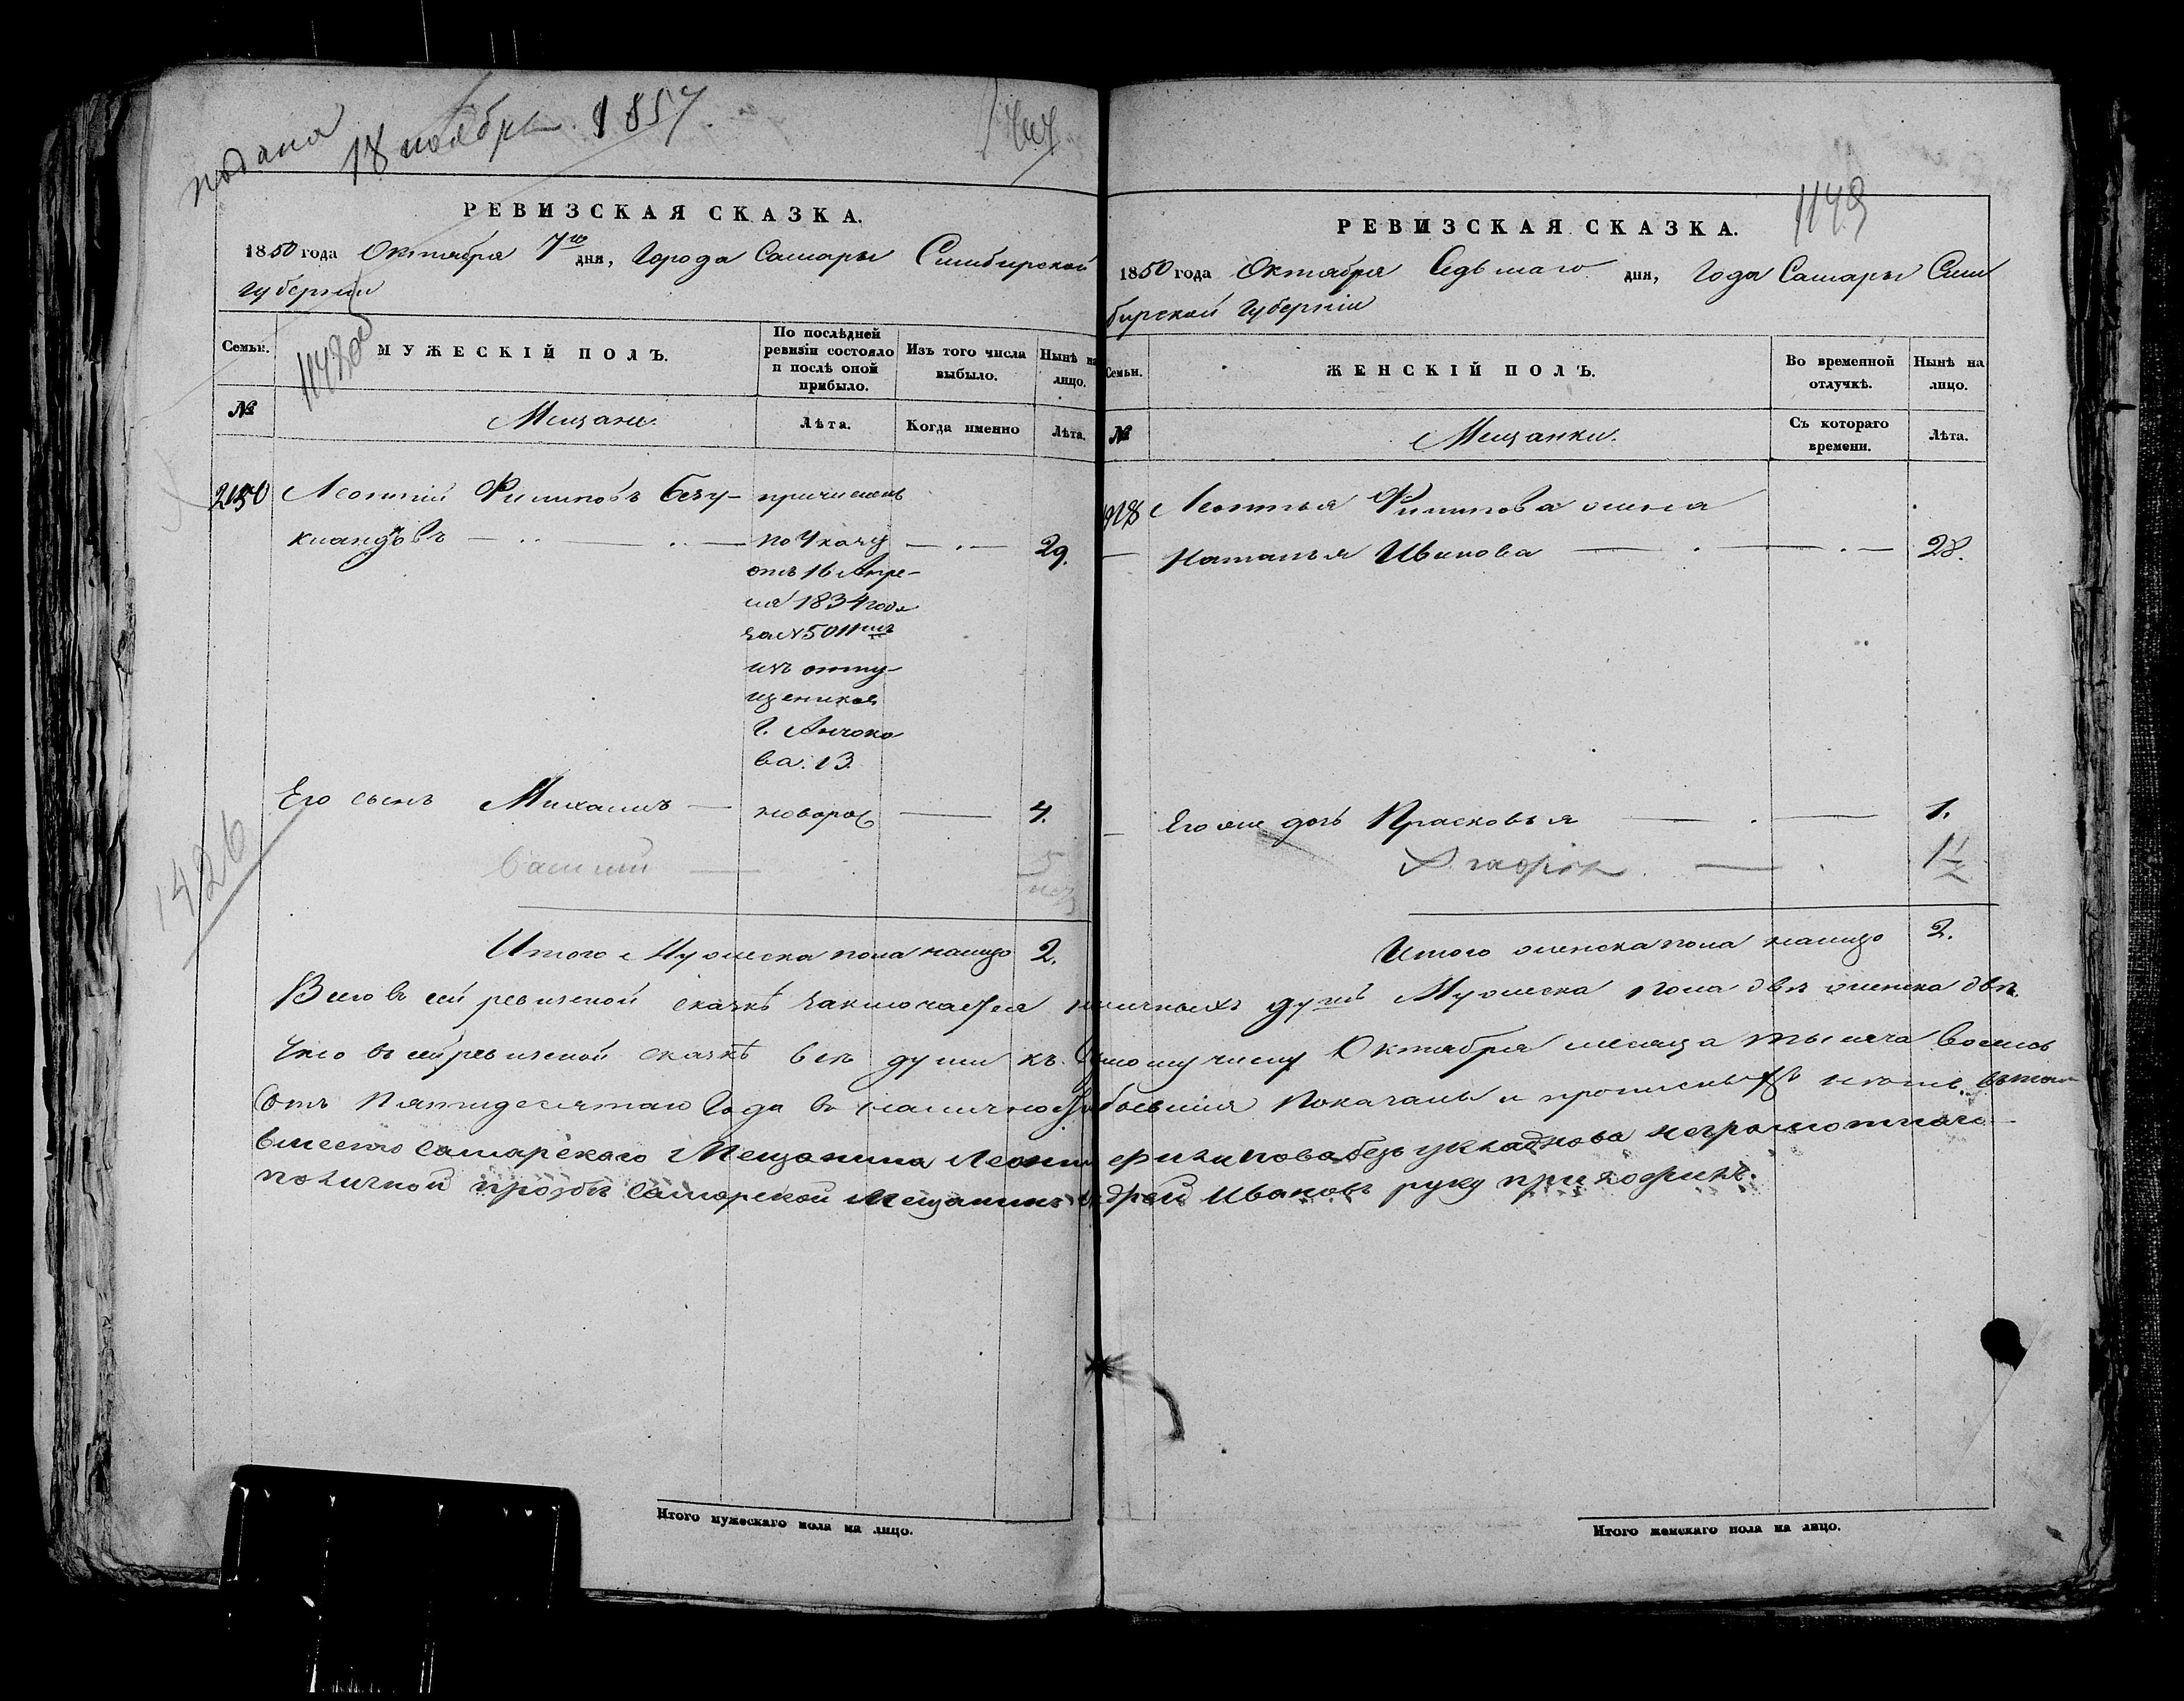 подана
18 ноября 1857
РЕВИЗСКАЯ СКАЗКА.
1850 года Октября 7го дня, Города Самары Симбирской
губернии
Семьи.
МУЖЕСКІЙ ПОЛЪ.
По послѣдней ревизіи состояло и послѣ оной прибыло.
Изъ того числа выбыло.
Нынѣ на лицо.
№
Мещане.
Лѣта.
Когда именно
Лѣта.
2150 Леонтій Филиповъ Безу-
кладновъ
причисленъ
по Указу
29.
отъ 16 Апре-
ля 1834 года
за № 5011мъ
изъ отпу-
щениковъ
Г.
ва. 13.
Его сынъ Михаилъ — новорож — 4.
Василий — 5 мес
1426
Итого Мужеска пола налицо 2.
РЕВИЗСКАЯ СКАЗКА.
1149
1850 года Октября Седьмаго дня, Года Самары Сим
бирской Губерніи
Семьи.
ЖЕНСКІЙ ПОЛЪ.
Во временной отлучкѣ.
Нынѣ на лицо.
№
Мещанки.
Съ котораго времени.
Лѣта.
Леонтья Филипова жена
Наталья Иванова — 28.
Его же дочь Прасковья — 1.
1½
Итого женска пола налицо 2.
Всего въ сей ревизской сказкѣ заключается наличныхъ душъ Мужеска пола двѣ женска двѣ.
Что въ сей ревизской сказкѣ всѣ души къ числу Октября месяца тысяча восемь
сотъ Пятидесятаго Года въ наличности бывшия Показаны и
вместо самарского Мещанина Леонтия филипова безукладнова неграмотнаго
по личной прозбѣ самарской Мещанинъ Андрей Ивановъ руку приложилъ.
Итого мужескаго пола на лицо.
Итого женскаго пола на лицо.